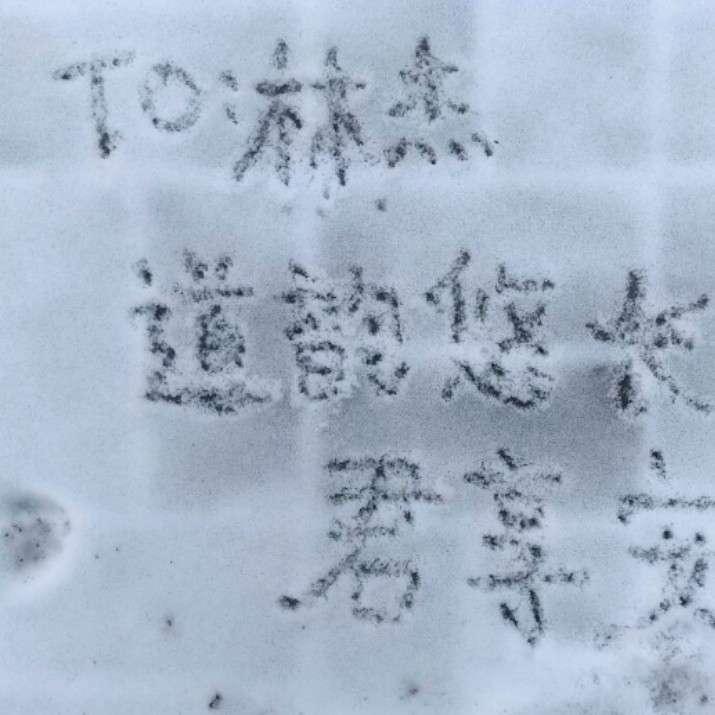 TO:林杰
道韵悠长
君享